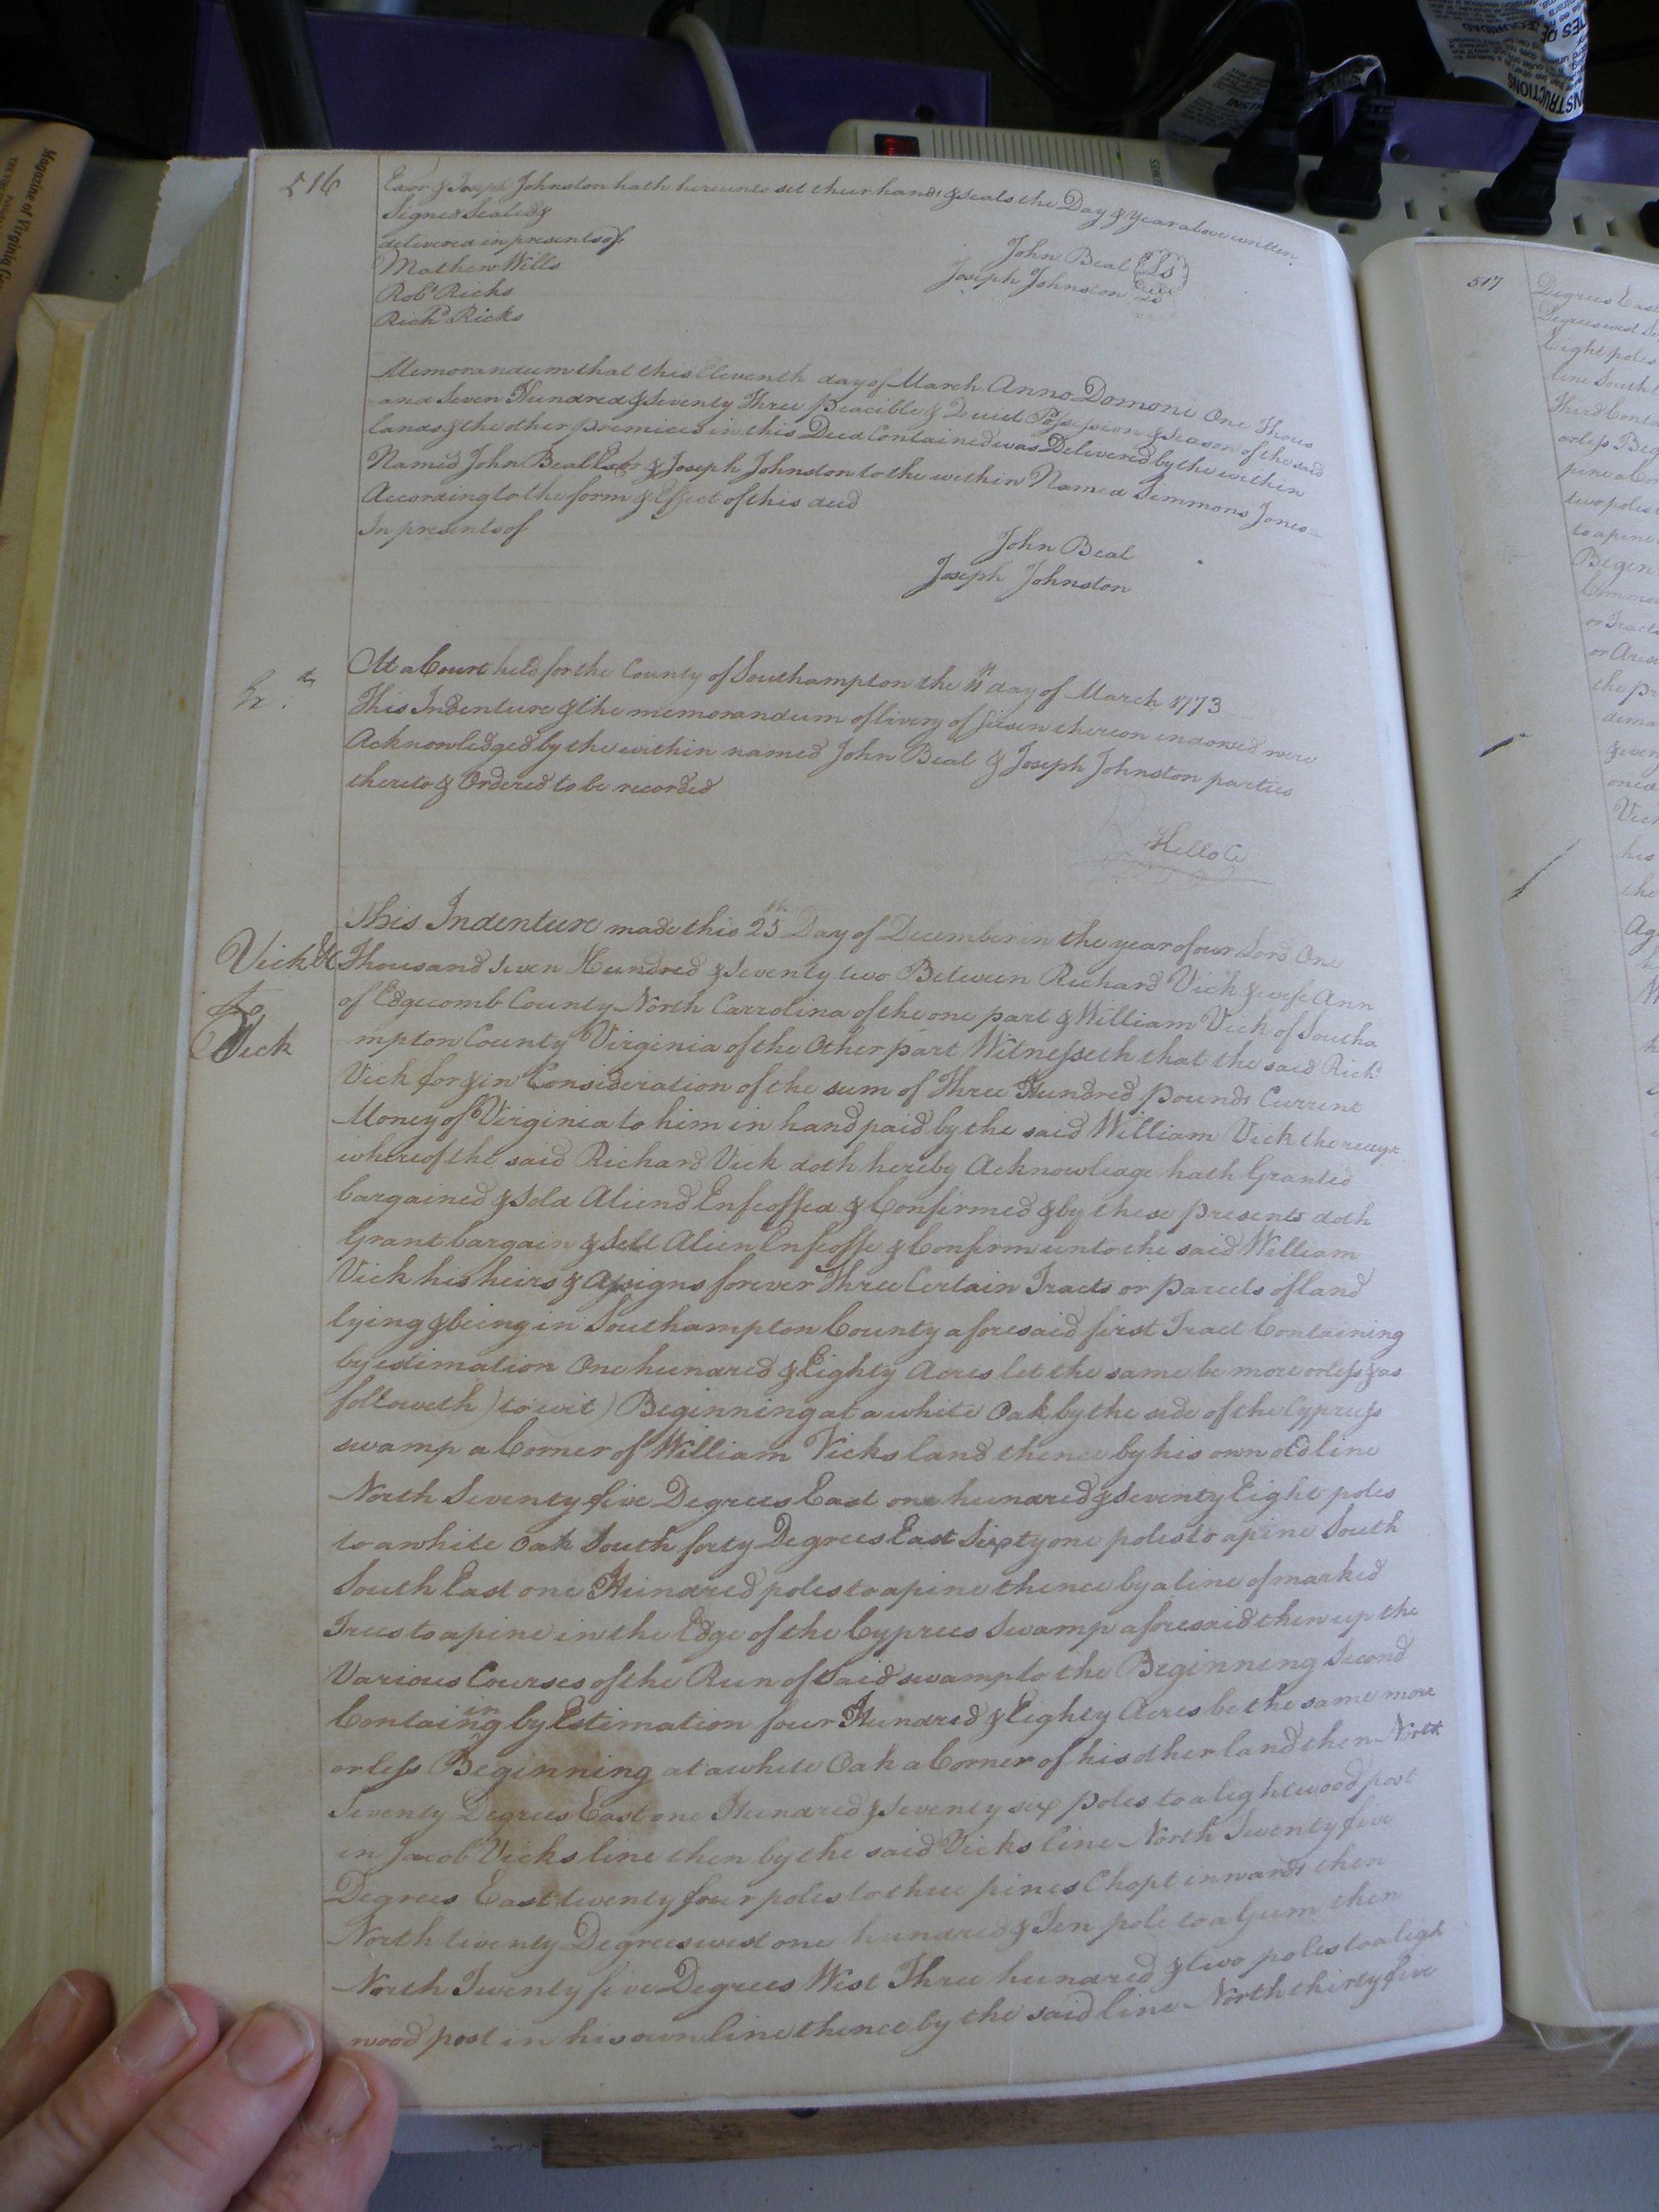 516
Exor & Joseph Johnston hath hereunto set their hands & seals the Day & Year above written.
Signed Sealed &
delivered in presents of
John Beal Ls
Mathew Wills
Joseph Johnston Ls
Robt Ricks
Richd Ricks
Memorandum that this Eleventh day of March Anno Domoni One Thous
and Seven Hundred & Seventy Three peacible & Quiet Possession & Season of the said
lands & the other premices in this Deed Contained was Delivered by the within
Named John Beal Exor & Joseph Johnston to the within Named Simmons Jones
According to the form & Effect of this deed
In presents of
John Beal
Joseph Johnston
At a Court held for the County of Southampton the 11th day of March 1773
This Indenture & the memorandum of livery of seisen thereon indorsed were
Acknowledged by the within named John Beal & Joseph Johnston parties
thereto & Ordered to be recorded
Vick &c
To
Vick
This Indenture made this 25th Day of December in the year of our Lord One
Thousand Seven Hundred & Seventy two Between Richard Vick & wife Ann
of Edgecomb County North Carrolina of the one part & William Vick of Southa
mpton County Virginia of the Other part Witnesseth that the said Richd
Vick for & in Consideration of the sum of Three Hundred pounds Current
Money of Virginia to him in hand paid by the said William Vick the receipt
whereof the said Richard Vick doth hereby Acknowledge hath Granted
bargained & Sold Aliend Enfeoffed & Confirmed & by these presents doth
Grant bargain & Sell Alien Enfeoffe & Confirm unto the said William
Vick his heirs & Assigns forever Three Certain Tracts or parcels of land
lying & being in Southampton County aforesaid first Tract Containing
by estimation One hundred & Eighty Acres let the same be more or less & as
followeth) to wit) Beginning at a white Oak by the side of the Cypress
swamp a Corner of William Vicks land thence by his own old line
North Seventy five Degrees East one hundred & Seventy Eight poles
to a white Oak South forty Degrees East Sixty one poles to a pine South
South East one Hundred poles to a pine thence by a line of marked
Trees to a pine in the Edge of the Cyprees Swamp aforesaid then up the
Various Courses of the Run of Said swamp to the Beginning Second
Containing by Estimation four Hundred & Eighty Acres be the same more
or less Beginning at a white Oak a Corner of his other land then North
Seventy Degrees East one Hundred & Seventy six poles to a lightwood post
in Jacob Vicks line then by the said Vicks line North Twenty five
Degrees East twenty four poles to three pines Chopt inwards then
North twenty Degrees west one hundred & Ten pole to a Gum then
North Twenty five Degrees West Three hundred & two poles to a ligh
wood post in his own line thence by the said line North thirty five
517
Degrees East
Degrees west
Eight poles
line South
Third Conta
or less Beg
pine a Cor
two poles
to a pine
Begin
or Tract
the pr
dema
Vick
his
the